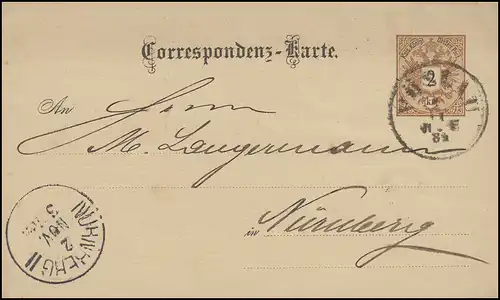 Correspondenz-Karte.
2
An Herrn
M. Langermann
in Nürnberg
NÜRNBERG II
2
NOV.